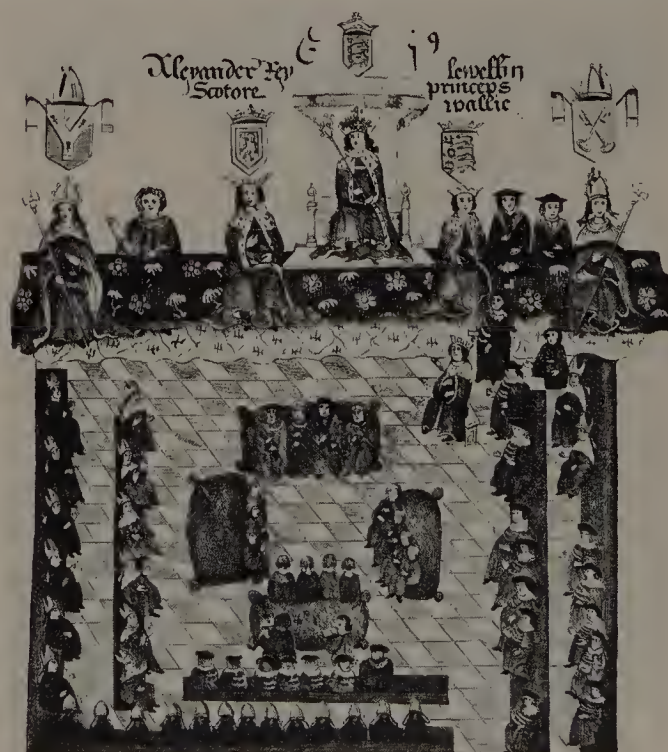 Alexander Rex
Scotore
lewellin
princeps
wallie